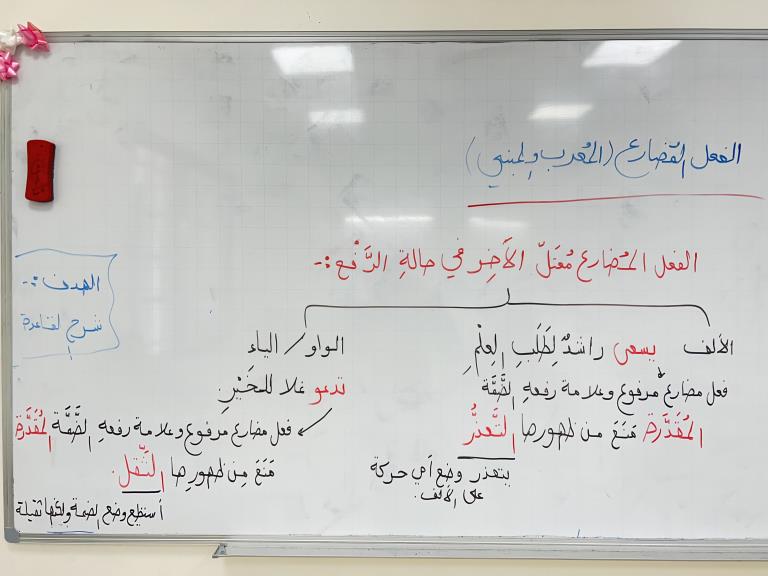 الفعل المضارع (المُعرب والمبني)
الفعل المُضارع مُعتلّ الآخِر في حالةِ الرَّفْعِ :-
الألف
يسعى راشدٌ لِطَلَبِ العِلْمِ
فعل مضارع مرفوع وعلامة رفعهِ الضَّمَّة
المُقَدَّرَة مَنَعَ من ظهورها التَّعذُّرُ
يتعذر وضع أي حركة
على الألف.
الواو / الياء
تدعو علا للخَيْرِ.
فعل مضارع مرفوع وعلامة رفعهِ الضَّمَّة المُقَدَّرَة
مَنَعَ مِن ظهورِها الثِّقَل.
أستطيع وضع الضمة ولكنها ثقيلة
الهدف :-
شرح لقاعدة